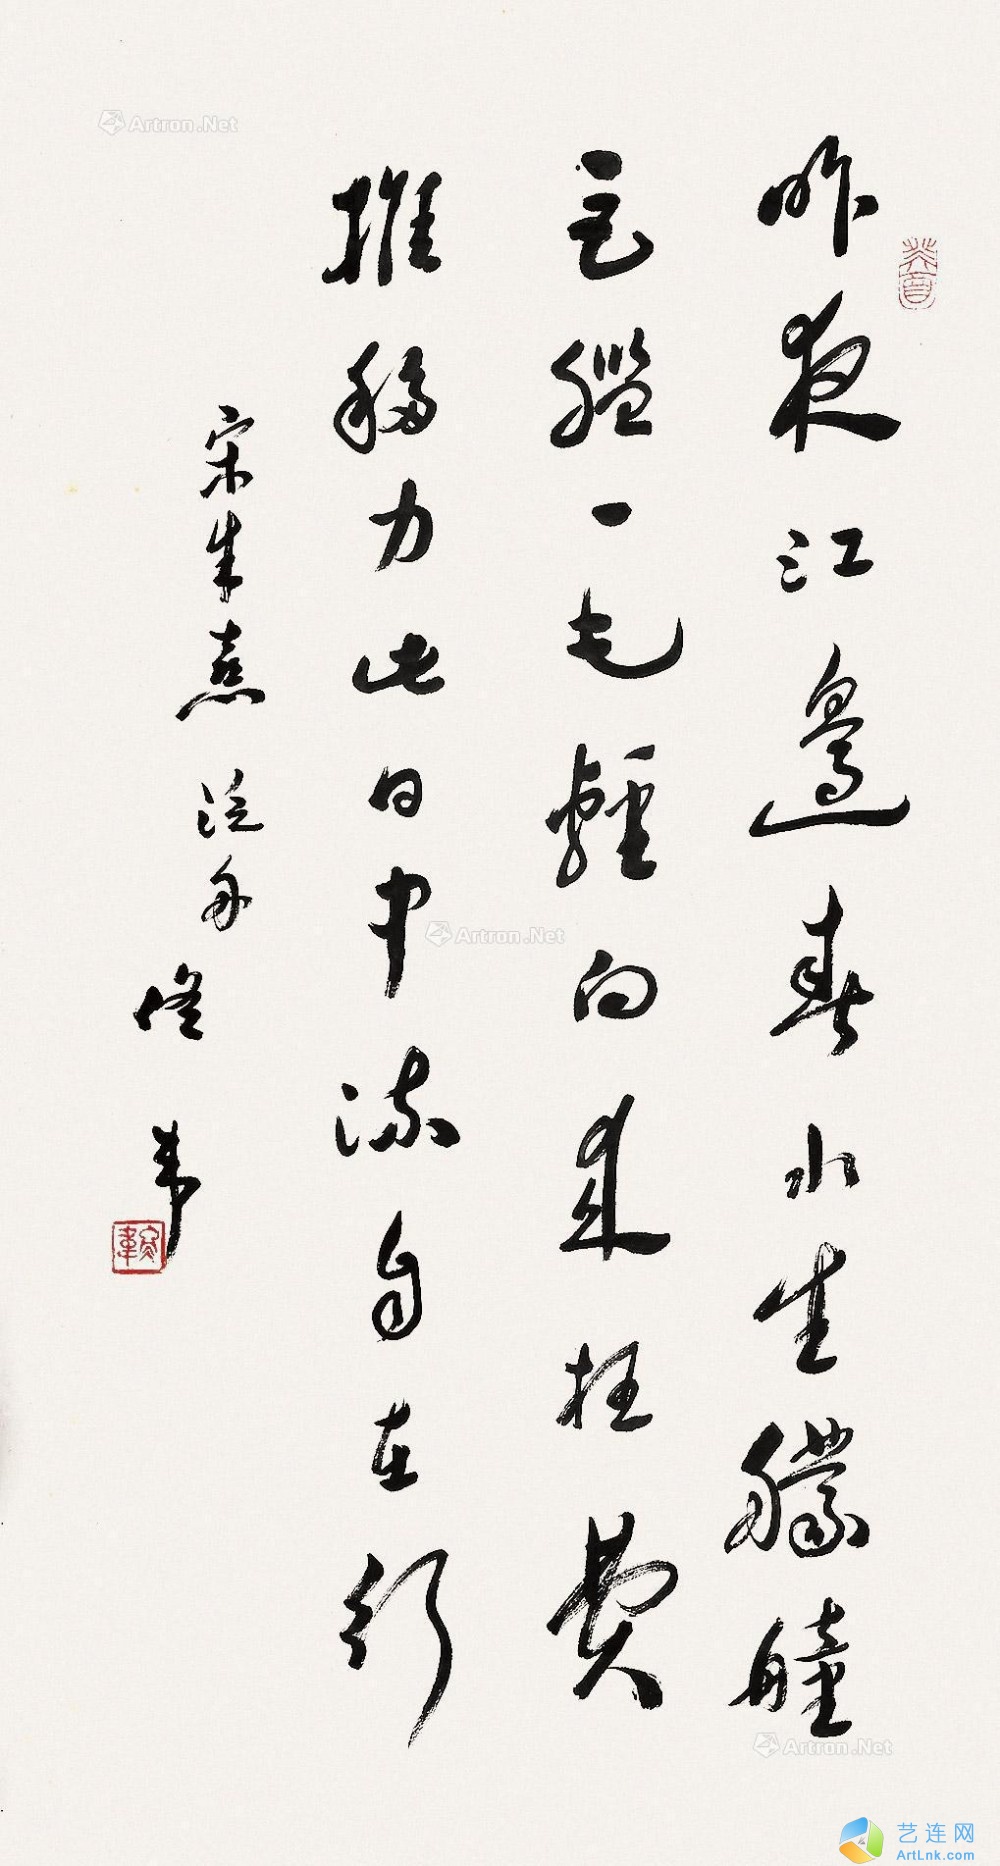 昨夜江邊春水生艨艟
巨艦一毛輕向來枉費
推移力此日中流自在行
宋朱熹泛舟
佟韋
佟韋
Artron.Net
Artron.Net
Artron.Net
艺连网
ArtLnk.com